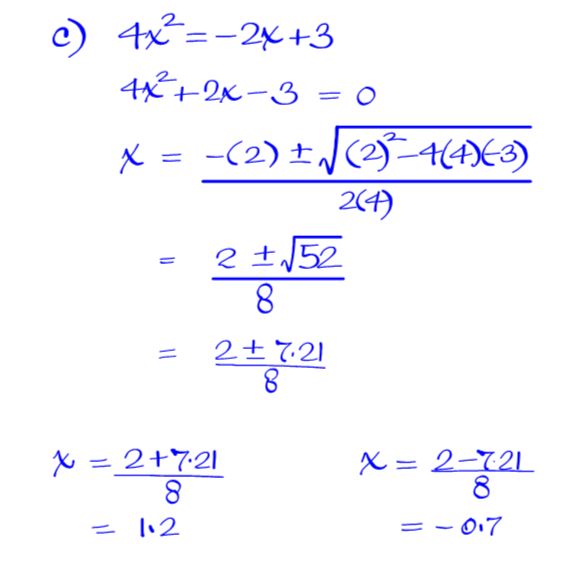 c) 4x² = -2x + 3
4x² + 2x - 3 = 0
x = (-(2) ± √((2)² - 4(4)(-3))) / 2(4)
= (2 ± √52) / 8
= (2 ± 7.21) / 8
x = (2 + 7.21) / 8    x = (2 - 7.21) / 8
= 1.2    = -0.7